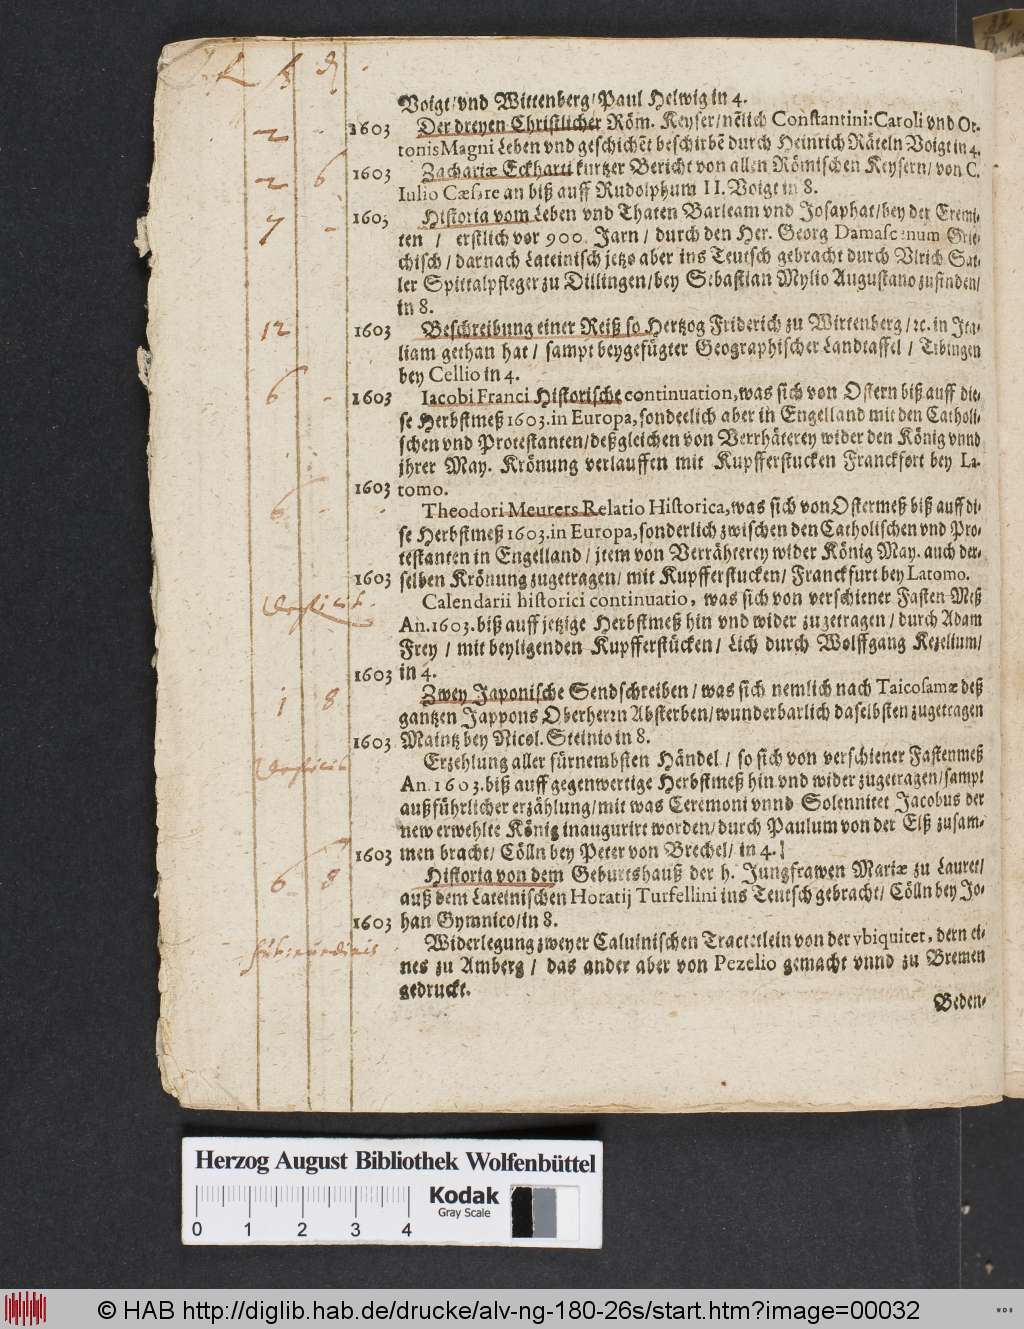 Voigt/vnd Wittenberg/Paul Helwig in 4.
1603 Der dreyen Christlicher Röm. Keyser/nẽlich Constantini: Caroli vnd Ot-
tonis Magni Leben vnd geschichẽt beschirbẽ durch Heinrich Räteln Voigt in 4.
1603 Zachariæ Eckharti kurtzer Bericht von allen Römischen Keysern/von C.
Iulio Cæsare an biß auff Rudolphum II. Voigt in 8.
1603 Historia vom Leben vnd Thaten Barleam vnd Josaphat/bey der Eremi-
ten / erstlich vor 900. Jarn / durch den Her. Georg Damascenum Grie-
chisch/darnach Lateinisch jetzo aber ins Teutsch gebracht durch Vlrich Sat-
ler Spittalpfleger zu Dillingen/bey Sebastian Mylio Augustano zufinden/
in 8.
1603 Beschreibung einer Reiß so Hertzog Friderich zu Wirtenberg/ꝛc. in Ita-
liam gethan hat / sampt beygefügter Geographischer Landtaffel / Tibingen
bey Cellio in 4.
1603 Iacobi Franci Historische continuation, was sich von Ostern biß auff die-
se Herbstmeß 1603. in Europa, sondeelich aber in Engelland mit den Catholi-
schen vnd Protestanten/deßgleichen von Verrhäterey wider den König vnnd
jhrer May. Krönung verlauffen mit Kupfferstucken Franckfort bey La-
1603 tomo.
Theodori Meurers Relatio Historica, was sich von Ostermeß biß auff di-
se Herbstmeß 1603. in Europa, sonderlich zwischen den Catholischen vnd Pro-
testanten in Engelland / jtem von Verrähterey wider König May. auch der-
1603 selben Krönung zugetragen/ mit Kupfferstucken/ Franckfurt bey Latomo.
Calendarii historici continuatio, was sich von verschiener Fasten-Meß
An. 1603. biß auff jetzige Herbstmeß hin vnd wider zugetragen / durch Adam
Frey / mit beyligenden Kupfferstücken / Lich durch Wolffgang Kezelium/
1603 in 4.
Zwey Japonische Sendschreiben / was sich nemlich nach Taicosamæ deß
gantzen Jappons Oberherrn Absterben/wunderbarlich daselbsten zugetragen
1603 Maintz bey Nicol. Steinio in 8.
Erzehlung aller fürnembsten Händel / so sich von verschiener Fastenmeß
An. 1603. biß auff gegenwertige Herbstmeß hin vnd wider zugetragen/sampt
außführlicher erzählung/mit was Ceremoni vnnd Solennitet Jacobus der
new erwehlte König inaugurirt worden/durch Paulum von der Elß zusam-
1603 men bracht/ Cölln bey Peter von Brechel/ in 4.
Historia von dem Geburtshauß der h. Jungfrawen Mariæ zu Lauret/
auß dem Lateinischen Horatij Tursellini ins Teutsch gebracht/ Cölln bey Jo-
1603 han Gymnico/in 8.
Widerlegung zweyer Caluinischen Tractetlein von der vbiquitet, dern ei-
nes zu Amberg / das ander aber von Pezelio gemacht vnnd zu Bremen
gedruckt.
Beden-
2 -
2 6
7 -
12
6 -
6 -
1 8
6 8
Herzog August Bibliothek Wolfenbüttel
0 1 2 3 4
Kodak
Gray Scale
© HAB http://diglib.hab.de/drucke/alv-ng-180-26s/start.htm?image=00032